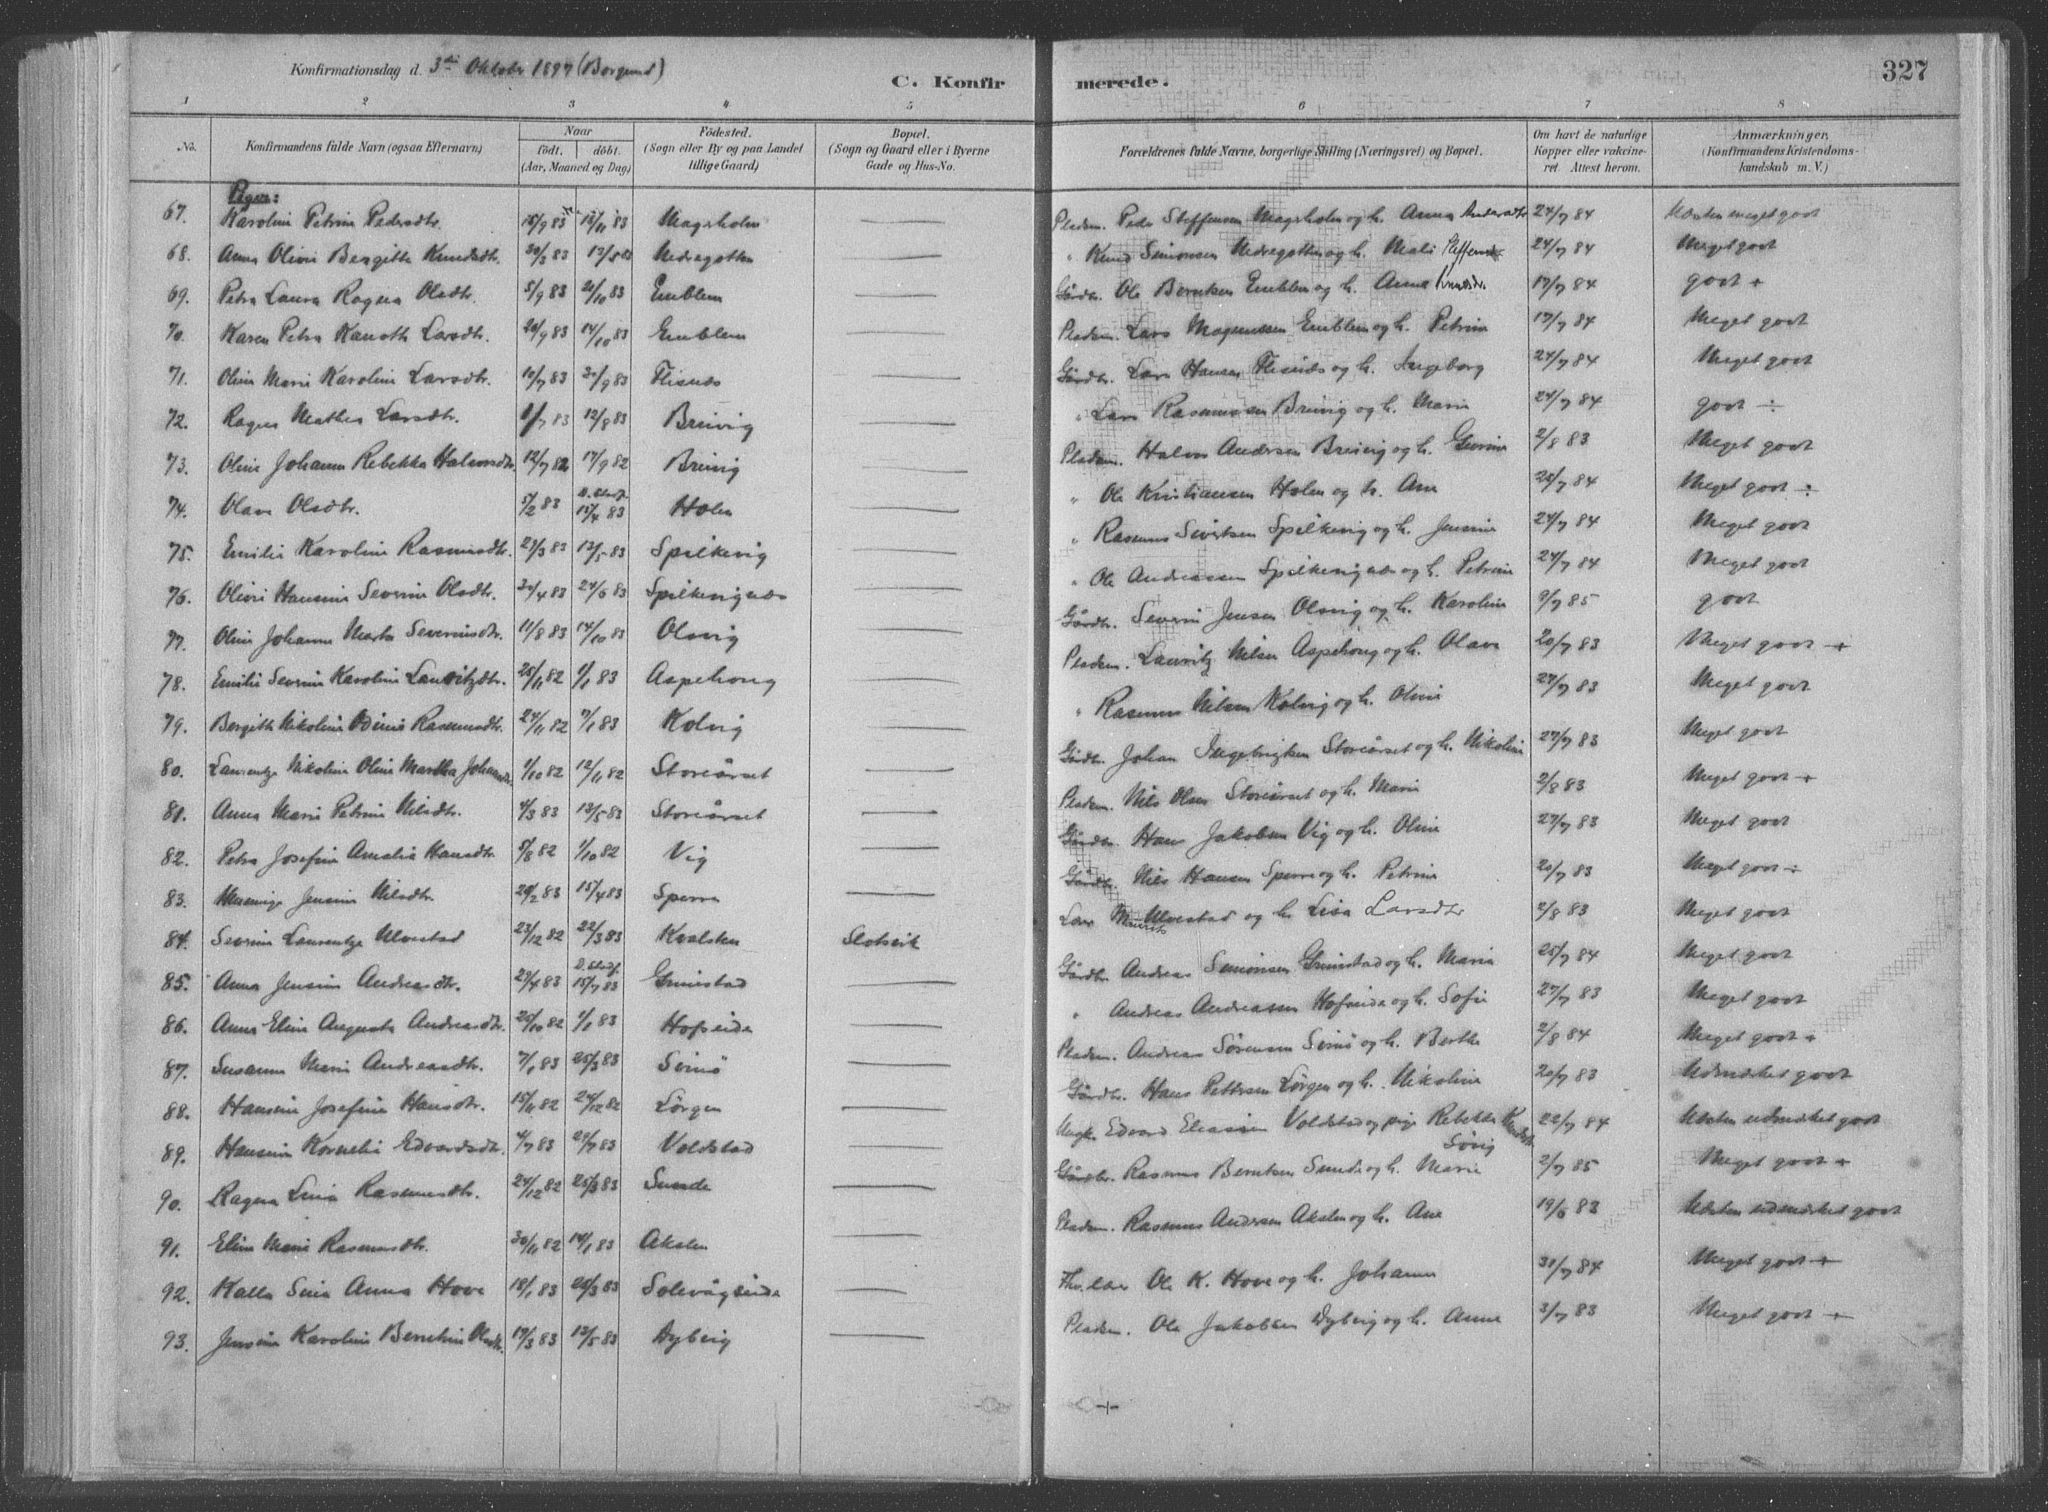 Konfirmationsdag d. 3die Oktober 1897 (Borgund)
C. Konfirmerede.
327
1 2 3 4 5 6 7 8
No.
Konfirmandens fulde Navn (ogsaa Efternavn)
Naar
födt. döbt.
(Aar, Maaned og Dag)
Födested.
(Sogn eller By og paa Landet tillige Gaard)
Bopæl.
(Sogn og Gaard eller i Byerne Gade og Hus-No.
Forældrenes fulde Navne, borgerlige Stilling (Næringsvei) og Bopæl.
Om havt de naturlige Kopper eller vakcineret Attest herom.
Anmærkninger, (Konfirmandens Kristendomskundskab m. V.)
Piger:
67. Karoline Petrine Pedersdtr. 15/9 83 18/11 83 Magerholm — Pladsm. Peder Steffensen Magerholm og h. Anna 24/7 84 Næsten meget godt
68. Anna Olivi Bergitte Knudsdtr. 30/3 83 13/5 83 Nedregotten — " Knud Simonsen Nedregotten og h. Mali Steffensd 24/7 84 Meget godt
69. Petra Laura Ragna Olsdtr. 5/9 83 20/10 83 Emblem — Gårdbr. Ole Berntsen Emblem og h. Anna Knudsdr 17/7 84 godt +
70. Karen Petra Larsdtr. 20/9 83 14/10 83 Emblem — Pladsm. Lars Magnussen Emblem og h. Petrine 17/7 84 Meget godt
71. Oline Marie Karoline Larsdtr. 10/7 83 30/9 83 Flisnæs — Gårdbr. Lars Hansen Flisnæs og h. Ingeborg 24/7 84 Meget godt
72. Ragna Mathea Larsdtr. 1/7 83 12/8 83 Breivig — " Lars Rasmussen Breivig og h. Marie 24/7 84 godt ÷
73. Oline Johanne Rebekka Halvorsdtr. 12/7 82 17/9 82 Breivig — Pladsm. Halvor Andersen Breivig og h. Gurine 2/8 83 Meget godt
74. Olava Olsdtr. 5/2 83 15/4 83 Holen — " Ole Kristiansen Holen og h. Ane 25/7 84 Meget godt ÷
75. Emilie Karoline Rasmusdtr. 23/3 83 13/5 83 Spilkevig — " Rasmus Sivertsen Spilkevig og h. Jensine 24/7 84 Meget godt
76. Olivi Hansine Severine Olsdtr. 30/4 83 24/6 83 Spilkevignæs — " Ole Andreassen Spilkevignæs og h. Petrine 24/7 84 Meget godt
77. Oline Johanne Marta Severinsdtr. 11/8 83 14/10 83 Olsvig — Gårdbr. Severin Jensen Olsvig og h. Karoline 9/7 85 godt
78. Emilie Severine Karoline Lauritzdtr. 25/11 82 1/1 83 Aspehoug — Pladsm. Lauritz Nilsen Aspehoug og h. Olava 20/7 83 Meget godt +
79. Bergitte Nikoline Rasmusdtr. 24/11 82 7/1 83 Kolvig — " Rasmus Nilsen Kolvig og h. Oline 27/7 83 Meget godt
80. Laurentze Nikoline Oline Martha Johansdtr. 1/10 82 12/11 82 Storeårset — Gårdbr. Johan Ingebrigtsen Storeårset og h. Nikoline 27/7 83 Meget godt
81. Anna Marie Petrine Nilsdtr. 4/3 83 13/5 83 Storeårset — Pladsm. Nils Olsen Storeårset og h. Marie 2/8 83 Meget godt +
82. Petra Josefine Amalia Hansdtr. 5/8 82 1/10 82 Vig — Gårdbr. Hans Jakobsen Vig og h. Oline 27/7 83 Meget godt
83. Jensine Nilsdtr. 20/2 83 15/4 83 Sperre — Gårdbr. Nils Hansen Sperre og h. Petrine 20/7 83 Meget godt ÷
84. Severine Laurentze Ulvestad 23/12 82 22/3 83 Kvalsten Slotsvik Lars Ulvestad og h. Lisa Larsdtr 2/8 83 Meget godt
85. Anna Jensine Andreasdtr. 29/4 83 15/7 83 Grimstad — Gårdbr. Andreas Simonsen Grimstad og h. Maria 25/7 84 Meget godt
86. Anna Eline Augusta Andreasdtr. 25/10 82 1/1 83 Hofseide — " Andreas Andreassen Hofseide og h. Sofie 27/7 83 Meget godt
87. Susanne Marie Andreasdtr. 7/1 83 25/3 83 — Pladsm. Andreas Sørensen og h. Berthe 2/8 84 Meget godt +
88. Hansine Josefine Hansdtr. 15/11 82 24/12 82 Lörgen — Gårdbr. Hans Pettersen Lörgen og h. Nikoline 20/7 83 Udmærket godt
89. Hansine Kornelie Edvardsdtr. 4/7 83 29/7 83 Voldstad — Ungk. Edvard Eliassen Voldstad og pige Rebekka Knudsdtr. 22/7 84 Næsten udmærket godt
90. Ragna Lina Rasmusdtr. 24/12 82 25/3 83 Sunde — Gårdbr. Rasmus Berntsen Sunde og h. Marie 2/7 85 Meget godt +
91. Eline Marie Rasmusdtr. 30/11 82 14/1 83 Akslen — Pladsm. Rasmus Andersen Akslen og h. Ane 19/6 83 Næsten udmærket godt
92. Kalla Sina Anna Hove 18/1 83 26/3 83 Solevågseide — Ole K. Hove og h. Johanne 31/7 84 Meget godt +
93. Jensine Karoline Berntine Olsdtr. 17/3 83 13/5 83 Dybvig — Pladsm. Ole Jakobsen Dybvig og h. Anne 3/7 83 Meget godt +